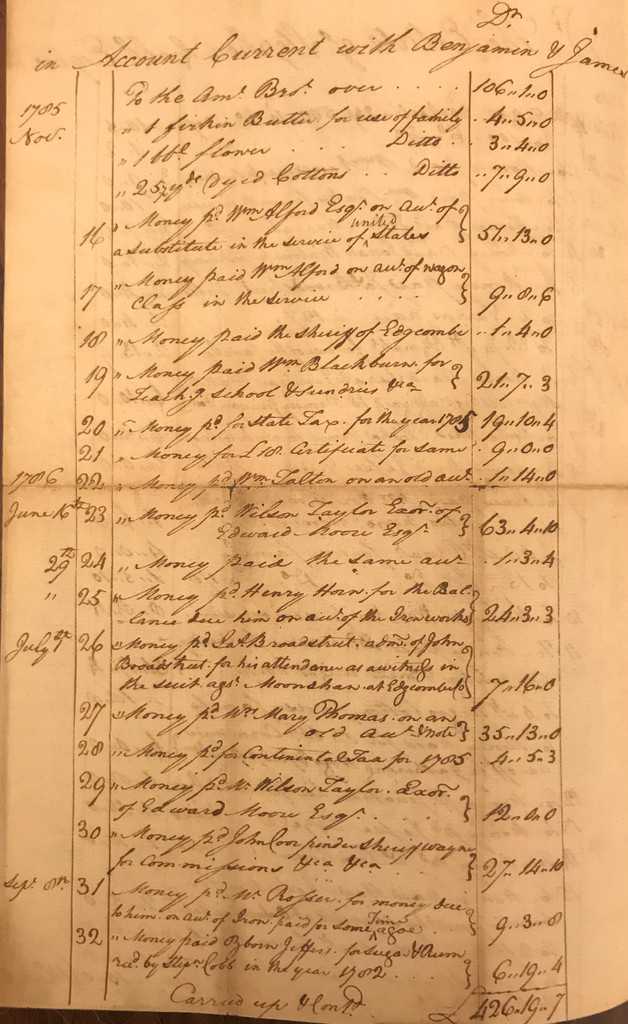 Dr
in Account Current with Benjamin & James
1785 To the Amt. Brot. over . . . . 106 " 1 " 0
Nov. " 1 firkin Butter for use of family . 4 " 5 " 0
" 1 bbl flower . . . . Ditto . . 3 " 4 " 0
" 25 yds Dyed Cottons . . Ditto " 7 " 9 " 0
16 " Money pd Wm Alford Esqr. on acct. of
a substitute in the service of united States } 51 " 13 " 0
17 " Money paid Wm Alford on acct. of wagon
Class in the service . . . . } 9 " 8 " 6
18 " Money paid the sheriff of Edgcombe " 1 " 4 " 0
19 " Money paid Wm Blackburn for
Teachg. School & sundries &ca } 21 " 7 " 3
20 " Money pd. for State Tax for the year 1785 19 " 10 " 4
21 " Money for £18. Certificate for same 9 " 0 " 0
1786 22 " Money pd Wm Talton on an old acct. . 1 " 14 " 0
June 16th 23 " Money pd Wilson Taylor Exor. of
Edward Moore Esqr. } 63 " 4 " 10
29th 24 " Money paid the same acct . 1 " 3 " 4
" 25 " Money pd Henry Horn for the Bal-
lance due him on acct. of the Iron works } 24 " 3 " 3
July 26 " Money pd Broadstreet admr. of John
Broadstreet for his attendance as a witness in
the suit agst. Moonshan at Edgcombe Co } 7 " 16 " 0
27 " Money pd Mrs Mary Thomas on an
old acct & note } 35 " 13 " 0
28 " Money pd for Continental Tax for 1785 4 " 5 " 3
29 " Money pd Mr Wilson Taylor Exor.
of Edward Moore Esqr. . . . } 12 " 0 " 0
30 " Money pd John Coor pender Sheriff wayne
for Commissions &ca &ca . . } 27 " 14 " 10
Sept. 8th 31 Money pd Mr Rosser for money due
to him on acct of Iron paid for some Time agoe } 9 " 3 " 8
32 " Money paid Ozborn Jeffers for Sugar & Rum
recd. by Stepn. Cobb in the year 1782 . . . } 6 " 19 " 4
Carried up & Contd. £426 " 19 " 7